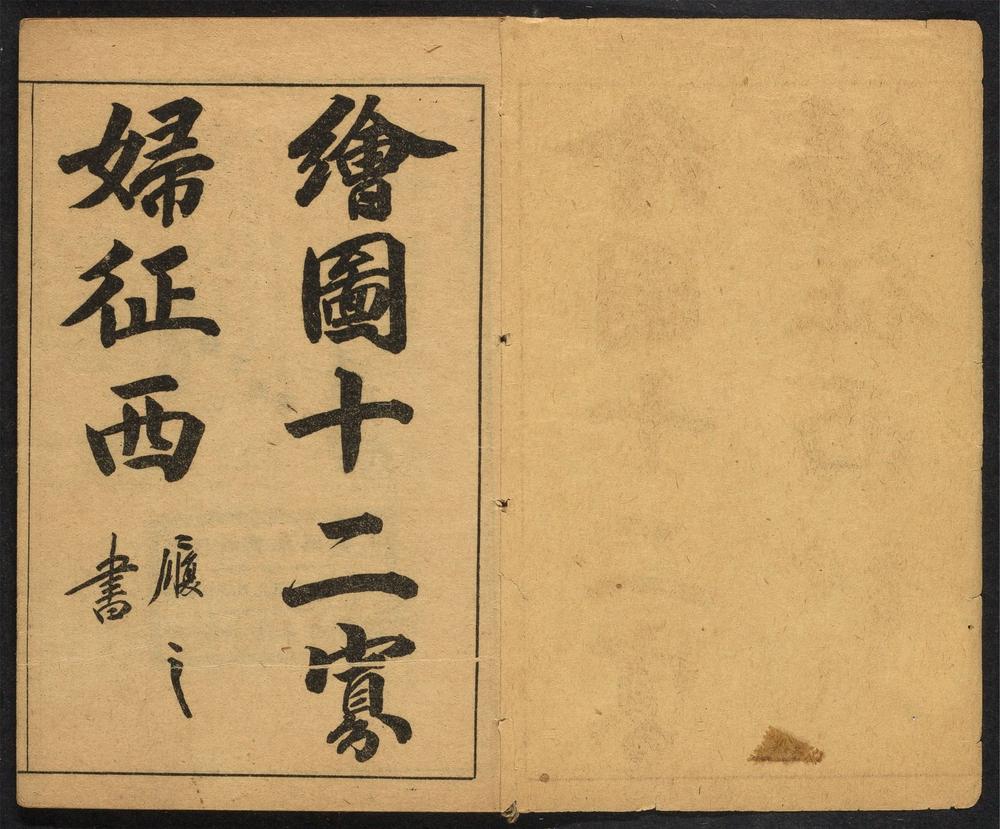 繪圖十二寡
婦征西
履之
書